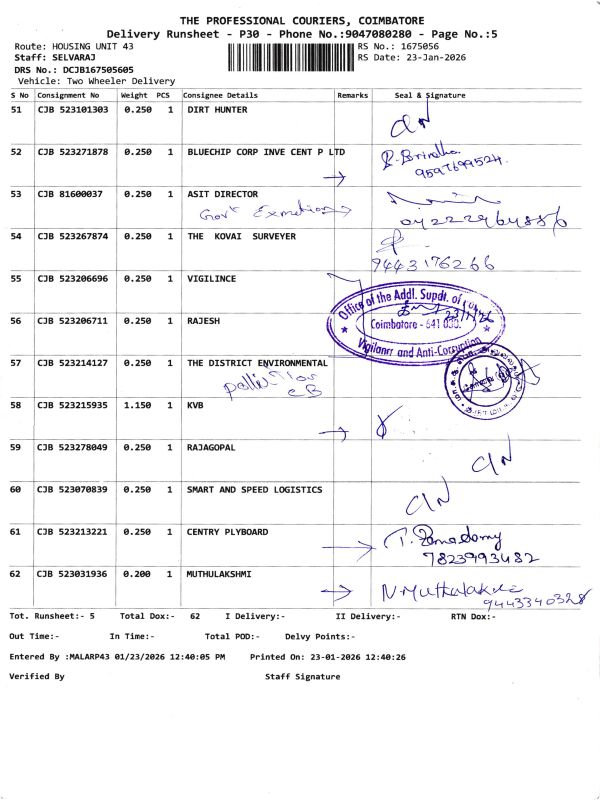 THE PROFESSIONAL COURIERS, COIMBATORE
Delivery Runsheet - P30 - Phone No.:9047080280 - Page No.:5
Route: HOUSING UNIT 43 RS No.: 1675056
Staff: SELVARAJ RS Date: 23-Jan-2026
DRS No.: DCJB167505605
Vehicle: Two Wheeler Delivery
S No Consignment No Weight PCS Consignee Details Remarks Seal & Signature
51 CJB 523101303 0.250 1 DIRT HUNTER
52 CJB 523271878 0.250 1 BLUECHIP CORP INVE CENT P LTD
9597699524
53 CJB 81600037 0.250 1 ASIT DIRECTOR
Govt
54 CJB 523267874 0.250 1 THE KOVAI SURVEYER
9443176266
55 CJB 523206696 0.250 1 VIGILINCE
Office of the Addl. Supdt. of
56 CJB 523206711 0.250 1 RAJESH
Coimbatore - 641
Vigilance and Anti-Corruption
57 CJB 523214127 0.250 1 THE DISTRICT ENVIRONMENTAL
58 CJB 523215935 1.150 1 KVB
59 CJB 523278049 0.250 1 RAJAGOPAL
60 CJB 523070839 0.250 1 SMART AND SPEED LOGISTICS
61 CJB 523213221 0.250 1 CENTRY PLYBOARD
7823993482
62 CJB 523031936 0.200 1 MUTHULAKSHMI
9443340328
Tot. Runsheet:- 5 Total Dox:- 62 I Delivery:- II Delivery:- RTN Dox:-
Out Time:- In Time:- Total POD:- Delvy Points:-
Entered By :MALARP43 01/23/2026 12:40:05 PM Printed On: 23-01-2026 12:40:26
Verified By Staff Signature